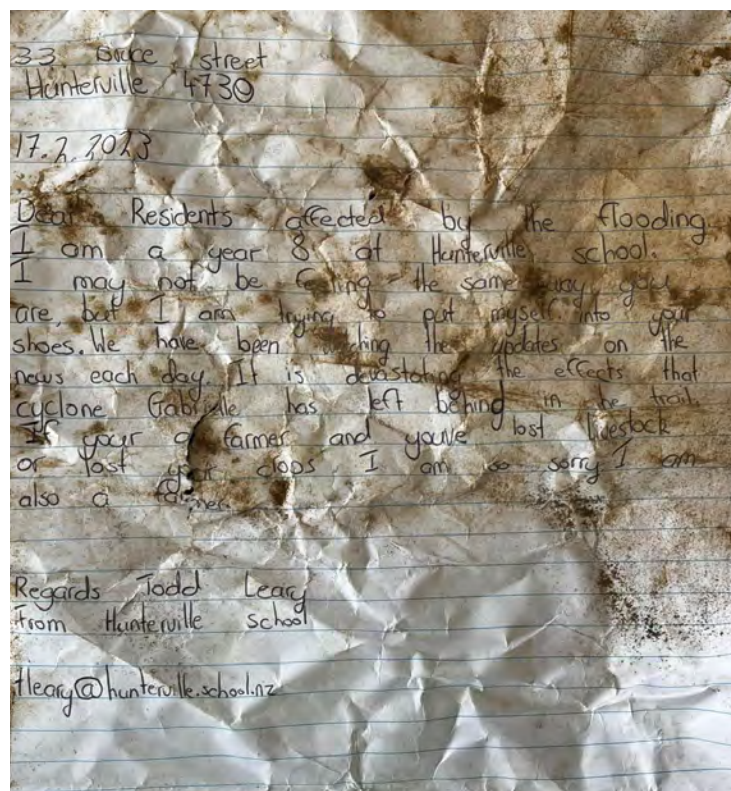 33 Bruce street
Hunterville 4730
17.2.2023
Dear Residents affected by the flooding
I am a year 8 at Hunterville school.
I may not be feeling the same way you
are, but I am trying to put myself into your
shoes. We have been watching the updates on the
news each day. It is devastating the effects that
cyclone Gabrielle has left behind in the trail.
If your a farmer and youve lost livestock
or lost your clops I am so sorry I am
also a farmer.
Regards Todd Leary
From Hunterville school
tleary@hunterville.school.nz